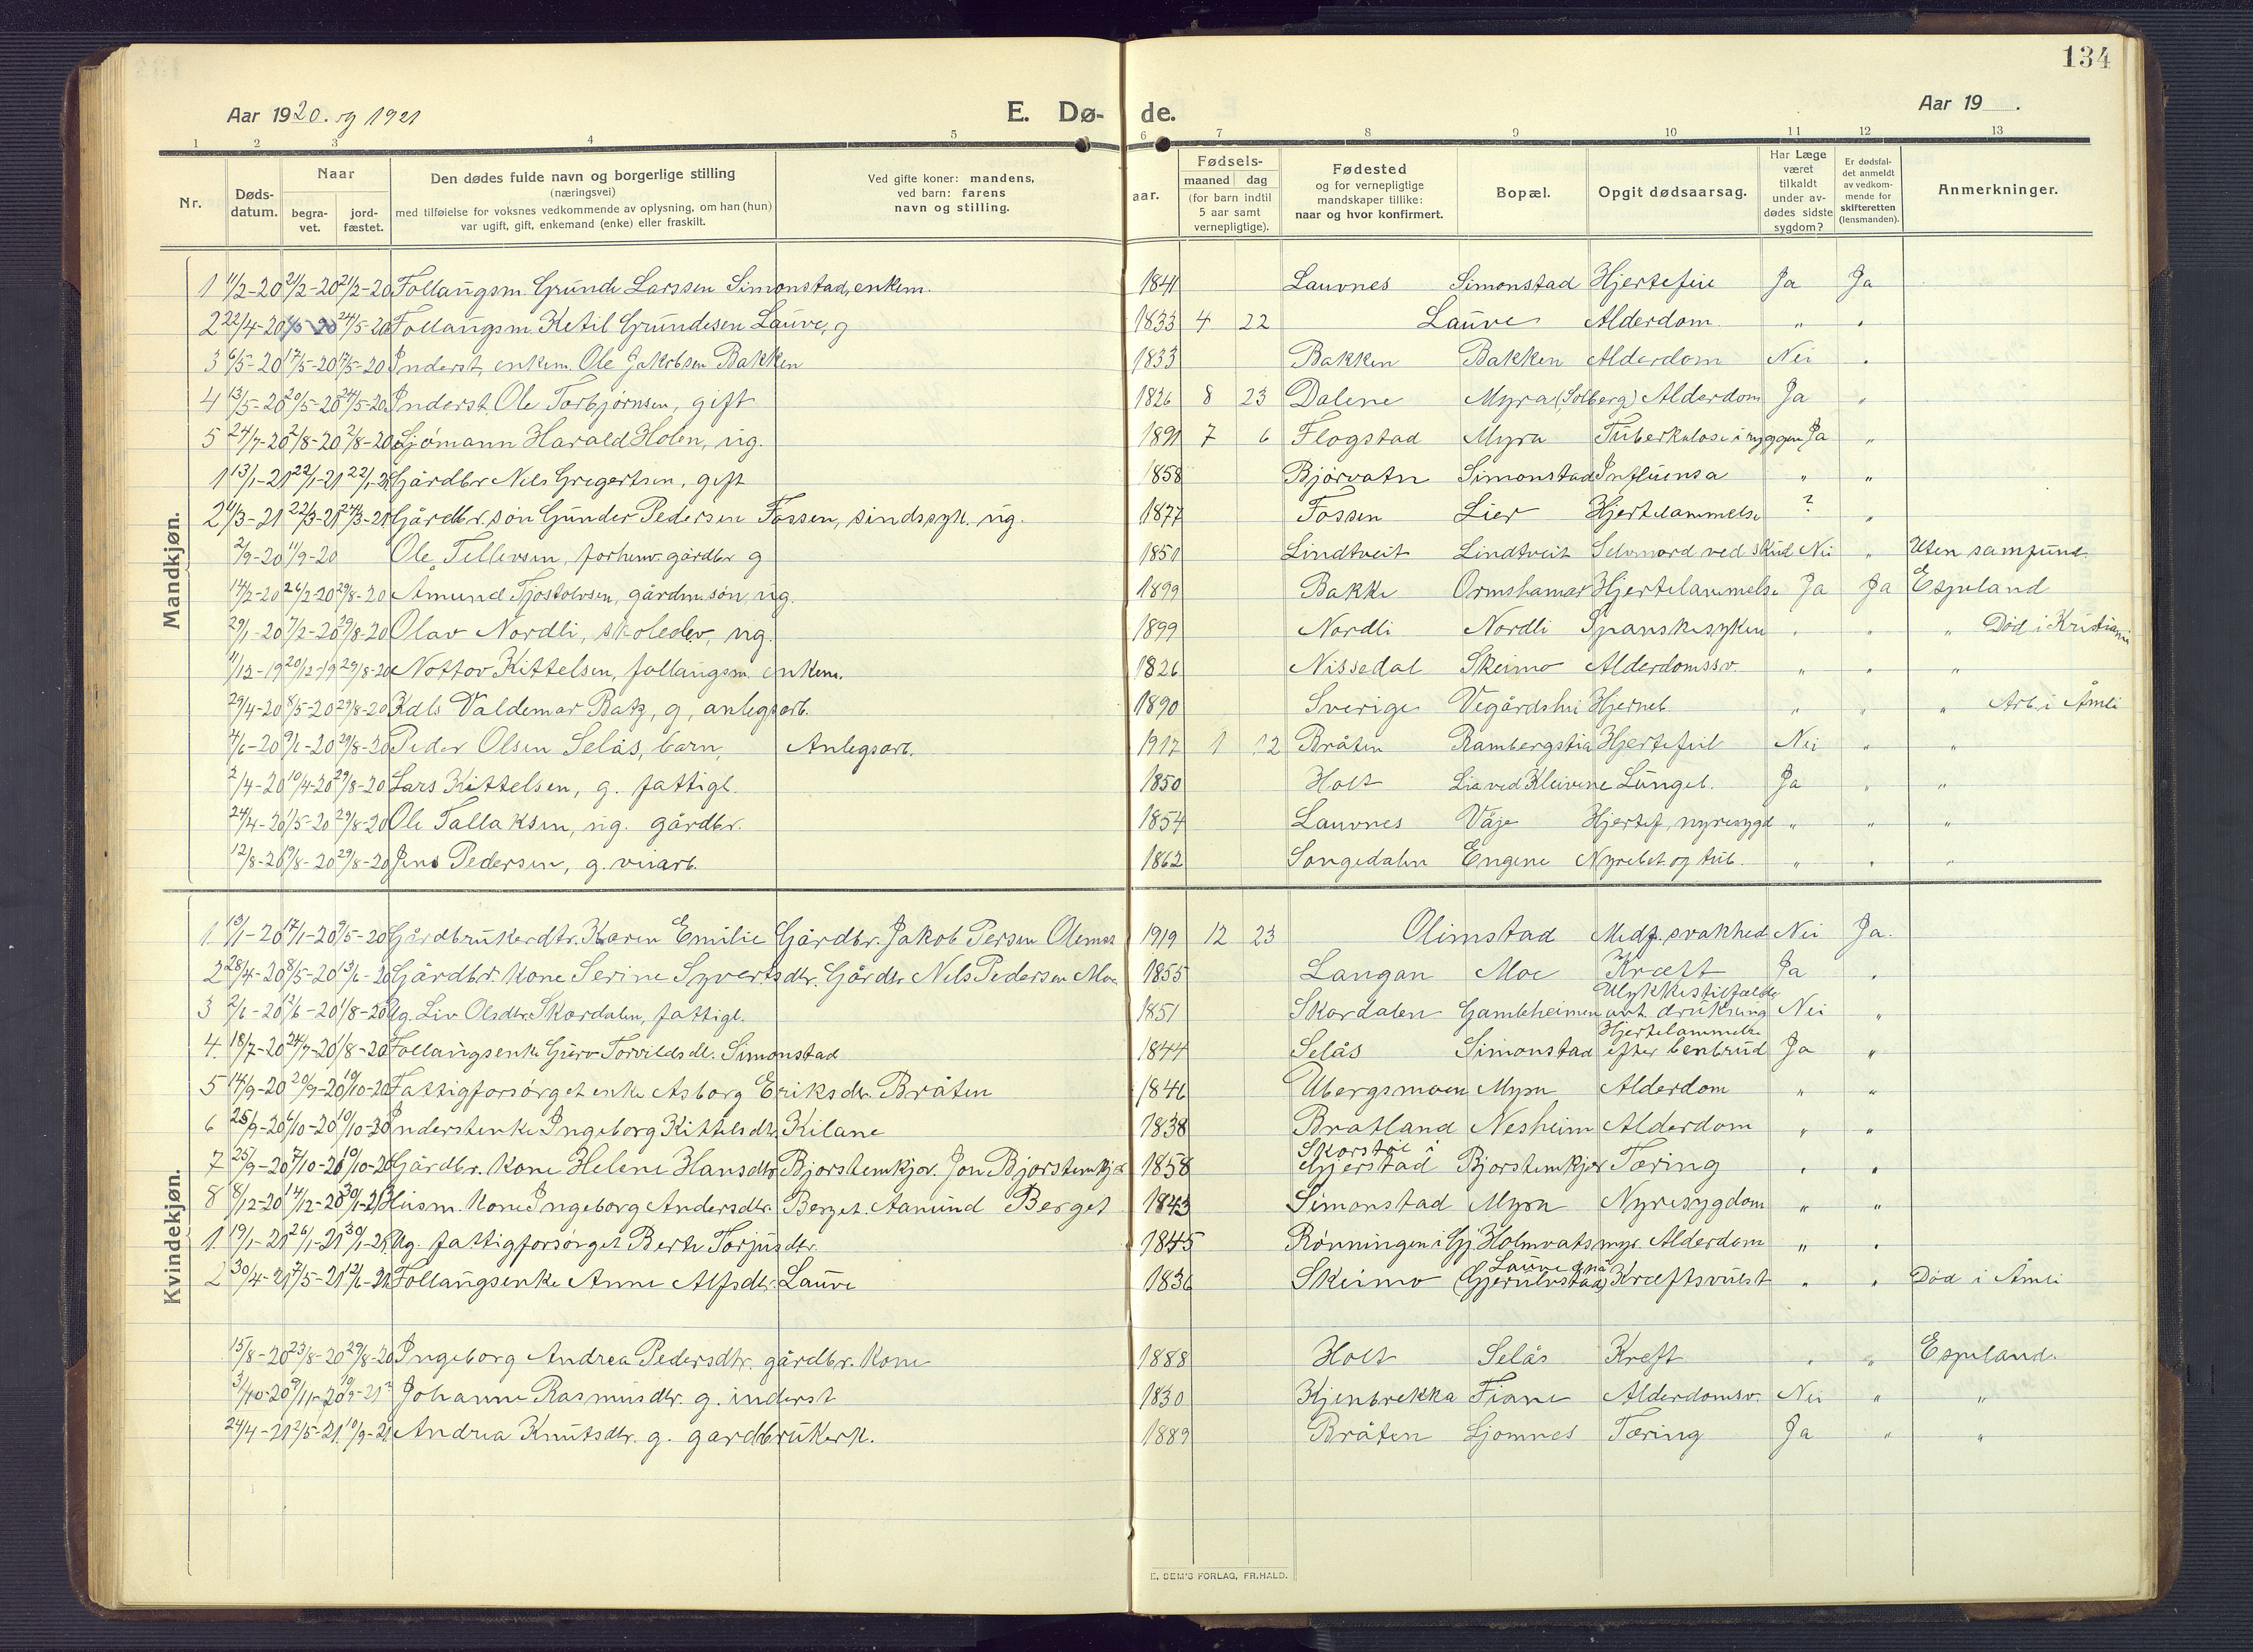 134
Aar 1920. og 1921 E. Dø- de. Aar 19 .
1 2 3 4 5 6 7 8 9 10 11 12 13
Nr.
Døds-
datum.
Naar
begra-
vet.
jord-
fæstet.
Den dødes fulde navn og borgerlige stilling
(næringsvei)
med tilføielse for voksnes vedkommende av oplysning, om han (hun)
var ugift, gift, enkemand (enke) eller fraskilt.
Ved gifte koner: mandens,
ved barn: farens
navn og stilling.
aar.
Fødsels-
maaned dag
(for barn indtil
5 aar samt
vernepligtige).
Fødested
og for vernepligtige
mandskaper tillike:
naar og hvor konfirmert.
Bopæl.
Opgit dødsaarsag.
Har Læge
været
tilkaldt
under av-
dødes sidste
sygdom?
Er dødsfal-
det anmeldt
av vedkom-
mende for
skifteretten
(lensmanden).
Anmerkninger.
Mandkjøn.
1 11/2-20 21/2-20 21/2-20 Follaugsm. Grunde Larssen Simonstad, enkem. 1841 Lauvnes Simonstad Hjertefeil Ja Ja
2 22/4-20 24/5-20 Follaugsm. Ketil Grundesen Lauve, g 1833 4 22 Lauve Alderdom. " "
3 6/5-20 17/5-20 17/5-20 Inderst, enkem. Ole Jakobsen Bakken 1833 Bakken Bakken Alderdom Nei "
4 13/5-20 20/5-20 24/5-20 Inderst. Ole Torbjørnsen, gift 1826 8 23 Dalene Myra (Solberg) Alderdom Ja "
5 24/7-20 2/8-20 2/8-20 Sjømann Harald Holen, ug. 1891 7 6 Flogstad Myra Tuberkulose i ryggen Ja "
1 13/1-21 22/1-21 22/1-21 Gårdbr. Nils Gregertsen, gift 1858 Bjørvatn Simonstad Influensa " "
2 11/3-21 22/3-21 24/3-21 Gårdbr. søn Gunder Pedersen Fossen, sindssyk. ug. 1877 Fossen Lier Hjertelammelse ? "
2/9-20 11/9-20 Ole Tellevsen, forhenv. gårdbr g 1851 Lindtveit Lindtveit Selvmord ved skud Nei " Uten samfund.
14/2-20 26/2-20 29/8-20 Amund Tjostolvsen, gårdm.søn, ug. 1899 Bakke Ormshamar Hjertelammelse Ja Ja Espeland
29/1-20 7/2-20 29/8-20 Olav Nordli, skoleelev, ug. 1899 Nordli Nordli Spanskesyken " " " Død i Kristiania
11/12-19 20/12-19 29/8-20 Nottov Kittelsen, follaugsm. enkem. 1826 Nissedal Skeimo Alderdomssv. " " "
29/4-20 8/5-20 29/8-20 Valdemar Batz, g, anlegsarb. 1890 Sverige Vegårdshei Hjerneb. " " " Arb. i Åmli
4/6-20 9/6-20 29/8-20 Peder Olsen Selås, barn, Anlegsarb. 1917 1 12 Bråten Rambergstia Hjertefeil Nei " "
2/4-20 10/4-20 29/8-20 Lars Kittelsen, g. fattigl. 1850 Holt Lia ved Kleivene Lungeb. Ja " "
24/4-20 1/5-20 29/8-20 Ole Tallaksen, ug. gårdbr. 1854 Lauvnes Våje Hjertef, nyresygd " " "
12/8-20 19/8-20 29/8-20 Jens Pedersen, g. veiarb. 1862 Songedalen Engene Nyrebet og tub. " " "
Kvindekjøn.
1. 10/1-20 17/1-20 9/5-20 Gårdbrukerdtr. Karen Emilie Gårdbr. Jakob Persen Olimst 1919 12 23 Olimstad Medf. svakhed Nei Ja.
2 28/4-20 8/5-20 13/6-20 Gårdbr. kone Serine Syvertsdtr. Gårdbr Nils Pedersen Moe 1855 Langan Moe Kræft Ja "
3 2/6-20 12/6-20 1/8-20 Ug. Liv Olsdtr. Skordalen, fattigl. 1851 Skordalen Gamleheimen Ulykkestilfælde ant. drukning Nei "
4. 18/7-20 24/7-20 1/8-20 Follaugsenke Guro Torvildsdt. Simonstad 1844 Selås Simonstad Hjertelammelse efter benbrud Ja "
5 14/9-20 20/9-20 10/10-20 Fattigforsørget enke Asborg Eriksdtr. Bråten 1846 Ubergsmoen Myra Alderdom " "
6 25/9-20 6/10-20 10/10-20 Inderstenke Ingeborg Kittelsdtr Kilane 1838 Bratland Nesheim Alderdom " "
7 25/9-20 7/10-20 10/10-20 Gårdbr. kone Helene Hansdtr Bjorstemkjør. Jon Bjorstemkjør 1858 Skorstøl i Gjerstad Bjorstemkjør Tæring " "
8 8/12-20 14/12-20 30/1-21 Husm. kone Ingeborg Andersdtr. Berget. Aamund Berget 1843 Simonstad Myra Nyresygdom " "
1. 19/1-21 26/1-21 30/1-21 Ug. fattigforsørget Berte Torjusdtr. 1845 Rønningen i Gj. Holmvatsmyr. Alderdom " "
2 30/4-21 7/5-21 12/6-21 Follaugsenke Anne Alfsdtr. Lauve 1836 Skeimo Lauve (Gjerulvstad) Kræftsvulst " " Død i Åmli
15/8-20 23/8-20 29/8-20 Ingeborg Andrea Pedersdtr. gårdbr. kone 1888 Holt Selås Kreft " " Espeland.
3/10-20 9/11-20 Johanne Rasmusdtr. g. inderst 1830 Kjenbrekka Fiane Alderdomsv. Nei " "
24/4-21 2/5-21 10/9-21 Andrea Knutsdtr. g. gardbrukerk. 1889 Bråten Ljomnes Tæring Ja " "
E. SEM'S FORLAG, FR.HALD.